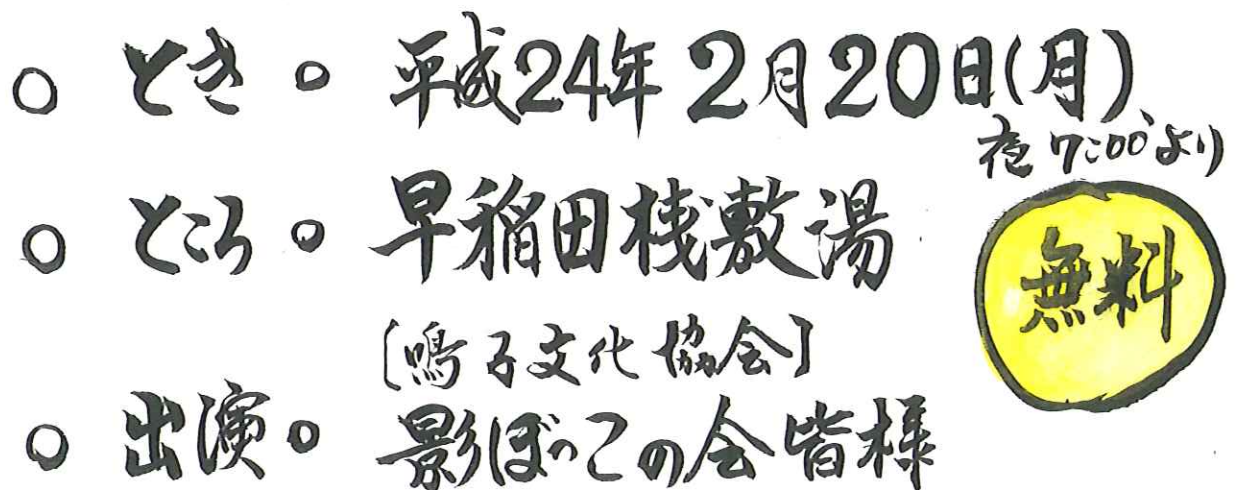 ○ とき。平成24年2月20日(月)
夜7:00より
○ ところ。早稲田桟敷湯
無料
[鳴子文化協会]
○ 出演。影ぼっこの会皆様